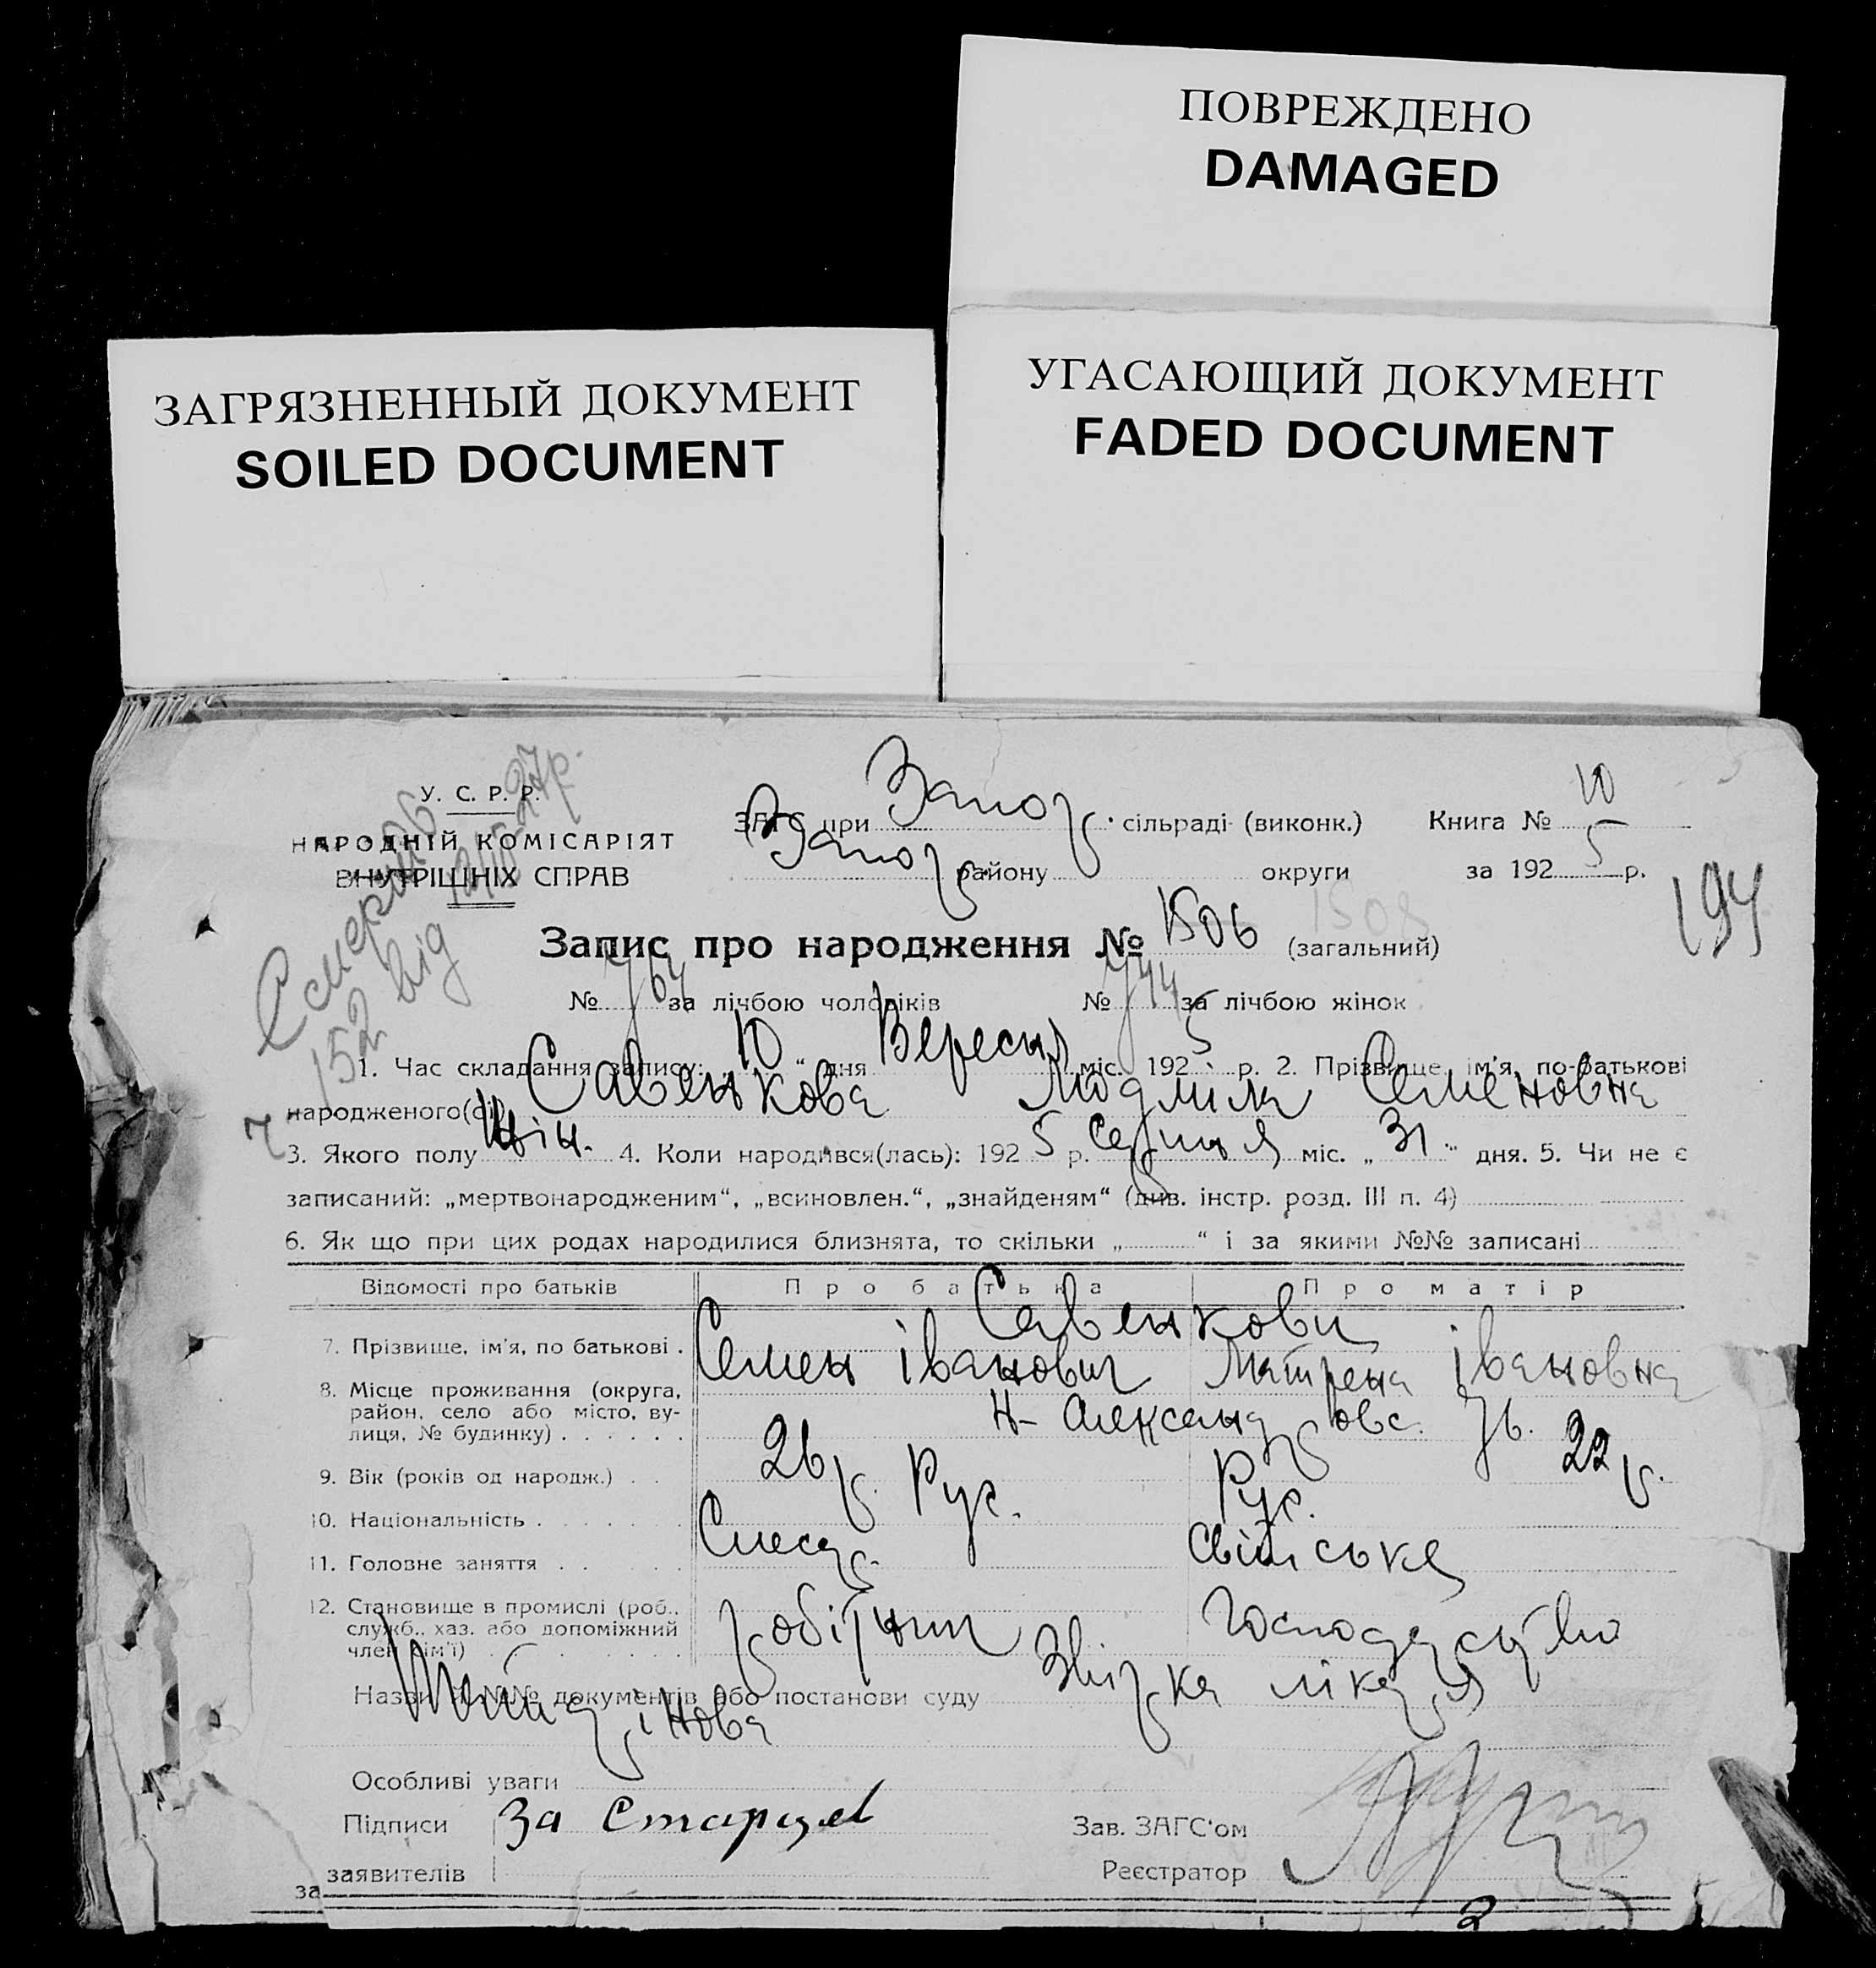 ПОВРЕЖДЕНО
DAMAGED
ЗАГРЯЗНЕННЫЙ ДОКУМЕНТ
SOILED DOCUMENT
УГАСАЮЩИЙ ДОКУМЕНТ
FADED DOCUMENT
У. С. Р. Р.
НАРОДНІЙ КОМІСАРІЯТ
ВНУТРІШНІХ СПРАВ
ЗАГС при Запор. сільраді (виконк.) Книга № 10
Запор. району округи за 1925 р.
194
Запис про народження № 1506 (загальний)
№ 764 за лічбою чоловіків № 744 за лічбою жінок
152 від
1. Час складання запису: „10“ дня Вересня міс. 1925 р. 2. Прізвище, ім'я, по-батькові
народженого(ої) Савенкова Людміла Семеновна
3. Якого полу жін. 4. Коли народився(лась): 1925 р. Серпня міс. „31“ дня. 5. Чи не є
записаний: „мертвонародженим“, „всиновлен.“, „знайденям“ (див. інстр. розд. III п. 4)
6. Як що при цих родах народилися близнята, то скільки „ “ і за якими №№ записані
Відомості про батьків Про батька Про матір
Савенкови
7. Прізвище, ім'я, по батькові . Семен Іванович Матрена Івановна
8. Місце проживання (округа, район, село або місто, вулиця, № будинку) . . . . . . Н-Александровс. 76.
9. Вік (років од народж.) . . 26 р. 22 р.
10. Національність . . . . . . Рус. Рус.
11. Головне заняття . . . . . Слесар. Свійське
12. Становище в промислі (роб., служб., хаз. або допоміжний член сім'ї) . . . . . . . робітник господарство
Назви й №№ документів або постанови суду Звірка лікаря
Особливі уваги
Підписи За
заявителів
Зав. ЗАГС'ом
Реєстратор
за
2